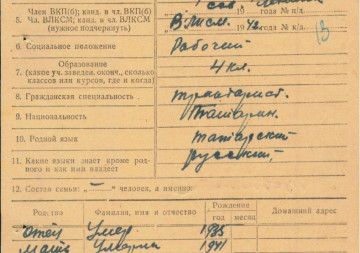 Член ВКП(б); канд. в чл. ВКП(б)
5. Чл. ВЛКСМ; канд. в чл. ВЛКСМ
(нужное подчеркнуть)
года № п/д.
года № к/д.
6. Социальное положение
Рабочий
Образование
7. (какое уч. заведен. оконч., сколько
классов или курсов, где и когда)
4 кл.
8. Гражданская специальность
9. Национальность
Татарин.
10. Родной язык
татарский
11. Какие языки знает кроме род-
ного и как ими владеет
русский
12. Состав семьи: „—“ человек, а именно:
Родство
Фамилия, имя и отчество
Рождения
год месяц
Домашний адрес
отец Умер 1935
мать Умерла 1941